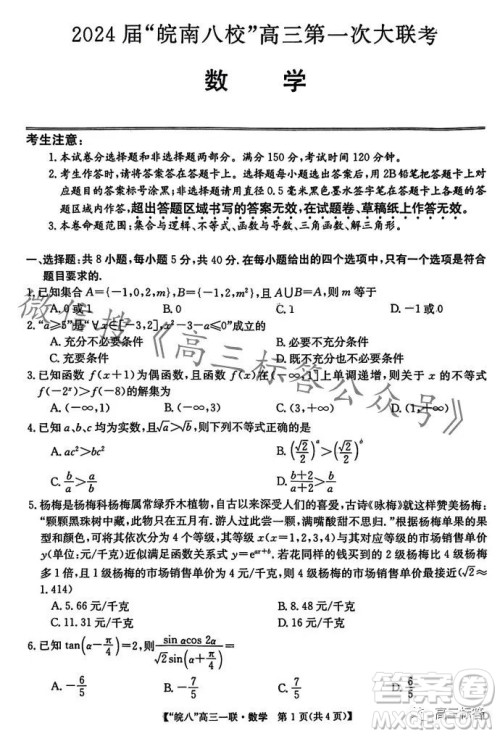 2024 届“皖南八校”高三第一次大联考
数 学
考生注意:
1. 本试卷分选择题和非选择题两部分。满分 150 分,考试时间 120 分钟。
2. 考生作答时,请将答案答在答题卡上。选择题每小题选出答案后,用 2B 铅笔把答题卡上对应
题目的答案标号涂黑;非选择题请用直径 0.5 毫米黑色墨水签字笔在答题卡上各题的答题区
域内作答,超出答题区域书写的答案无效,在试题卷、草稿纸上作答无效。
3. 本卷命题范围:集合与逻辑、不等式、函数与导数、三角函数与解三角形。
一、选择题:共 8 小题,每小题 5 分,共 40 分。在每小题给出的四个选项中,只有一个选项是符合
题目要求的。
1. 已知集合 A={-1,0,2,m}, B={-1,m²},且 A∪B=A,则 m 的值为
A. 0 或 1 B. 1 C. -1 D. 0
2. “a≥5”是“∀x∈[-3,2],x²-3-a≤0”成立的
A. 充分不必要条件 B. 必要不充分条件
C. 充要条件 D. 既不充分也不必要条件
3. 已知函数 f(x+1)为偶函数,且函数 f(x)在[1,+∞)上单调递增,则关于 x 的不等式
f(-2ˣ)>f(-8)的解集为
A. (-∞,3) B. (3,+∞) C. (-∞,2) D. (2,+∞)
4. 已知 a、b、c 均为实数,且√a>√b,则下列不等式正确的是
A. ac²>bc² B. (√2/2)ᵃ>(√2/2)ᵇ
C. b/a>a/b D. a/b>b/a
5. 杨梅是杨梅科杨梅属常绿乔木植物,自古以来深受人们的喜爱,古诗《咏梅》就这样赞美杨梅:
“颗颗黑珠树中藏,此物只在五月有.游人过此尝一颗,满嘴酸甜不思归.”根据杨梅单果的果
型和颜色,可将其次分为 4 个等级,其等级 x(x=1,2,3,4)与其对应等级杨梅的市场销售单
价 y(单位:元/千克)近似满足函数关系式 y=eᵃˣ⁺ᵇ.若花同样的钱买到的 2 级杨梅比 4 级杨
梅多 1 倍,且 1 级杨梅的市场销售单价为 4 元/千克,则 4 级杨梅的市场销售单价最接近(√2≈
1.414)
A. 5.66 元/千克 B. 8 元/千克
C. 11.31 元/千克 D. 16 元/千克
6. 已知 tan(α-π/4)=2,则 sin α cos 2α/√2sin(α-π/4)=
A. -6/5 B. -5/6 C. 5/6 D. 6/5
【“皖八”高三一联·数学 第 1 页(共 4 页)】
微信搜《高三标答公众号》
高三标答